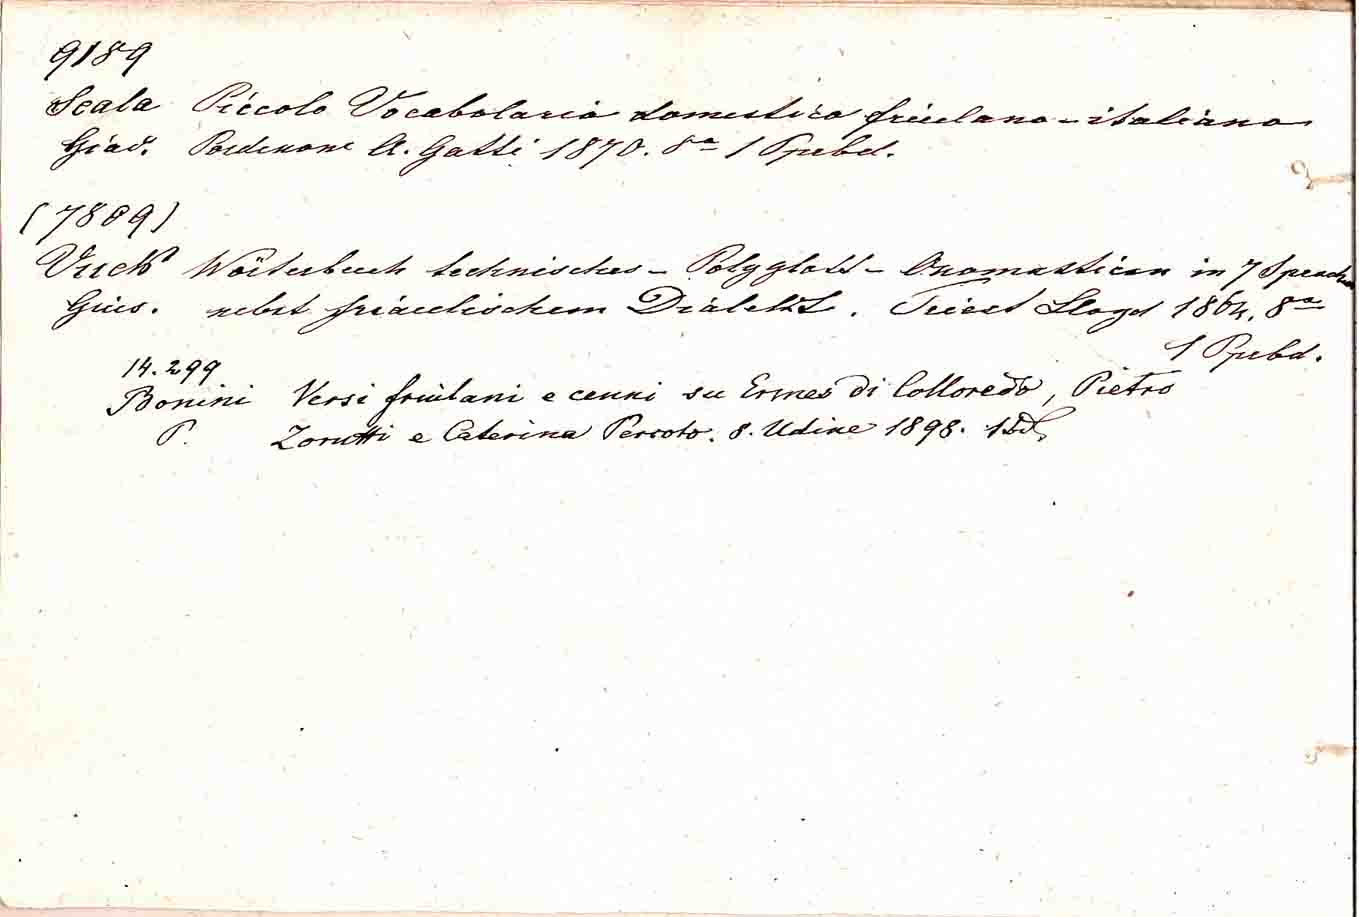 9189
Scala Piccolo Vocabolario domestico friulano-italiano
Giac. Pordenone A. Gatti 1870. 8° 1 Ppbd.
(7889)
Vuck Wörterbuch technisches - Polyglott - Onomasticon in 7 Sprachen
Gius. nebst friaulischem Dialekt. Triest Lloyd 1864. 8°
1 Ppbd.
14.299
Bonini Versi friulani e cenni su Ermes di Colloredo, Pietro
P. Zorutti e Caterina Percoto. 8. Udine 1898. 1 Bd.